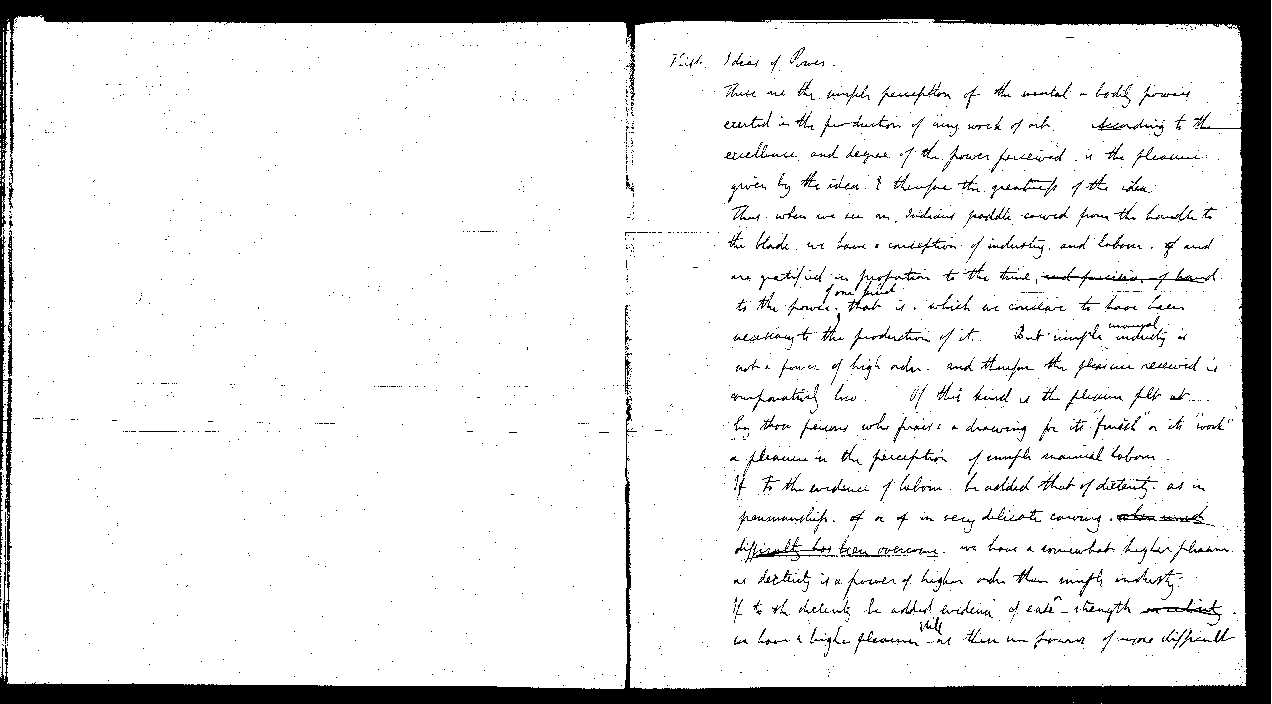 First. Ideas of Power.
These are the simple perception of the mental or bodily powers
exerted in the production of any work of art. According to the
excellence and degree of the power perceived is the pleasure
given by the idea & therefore the greatness of the idea
Thus when we see an Indians paddle carved from the handle to
the blade we have a conception of industry and labour. of and
are gratified in proportion to the time, and precision of hand
of one kind
to the power, that is, which we conceive to have been
necessary to the production of it. But simple manual industry is
not a power of high order. and therefore the pleasure received is
comparatively low. Of this kind is the pleasure felt at
by those persons who praise a drawing for its "finish" or its "work"
a pleasure in the perception of simple manual labour.
If to the evidence of labour be added that of dexterity. as in
penmanship. of or of in very delicate carving. when much
difficulty has been overcome. we have a somewhat higher pleasure
as dexterity is a power of higher order than simple industry.
If to the dexterity be added evidence of ease - strength
we have a higher pleasure still as these are powers of more difficult